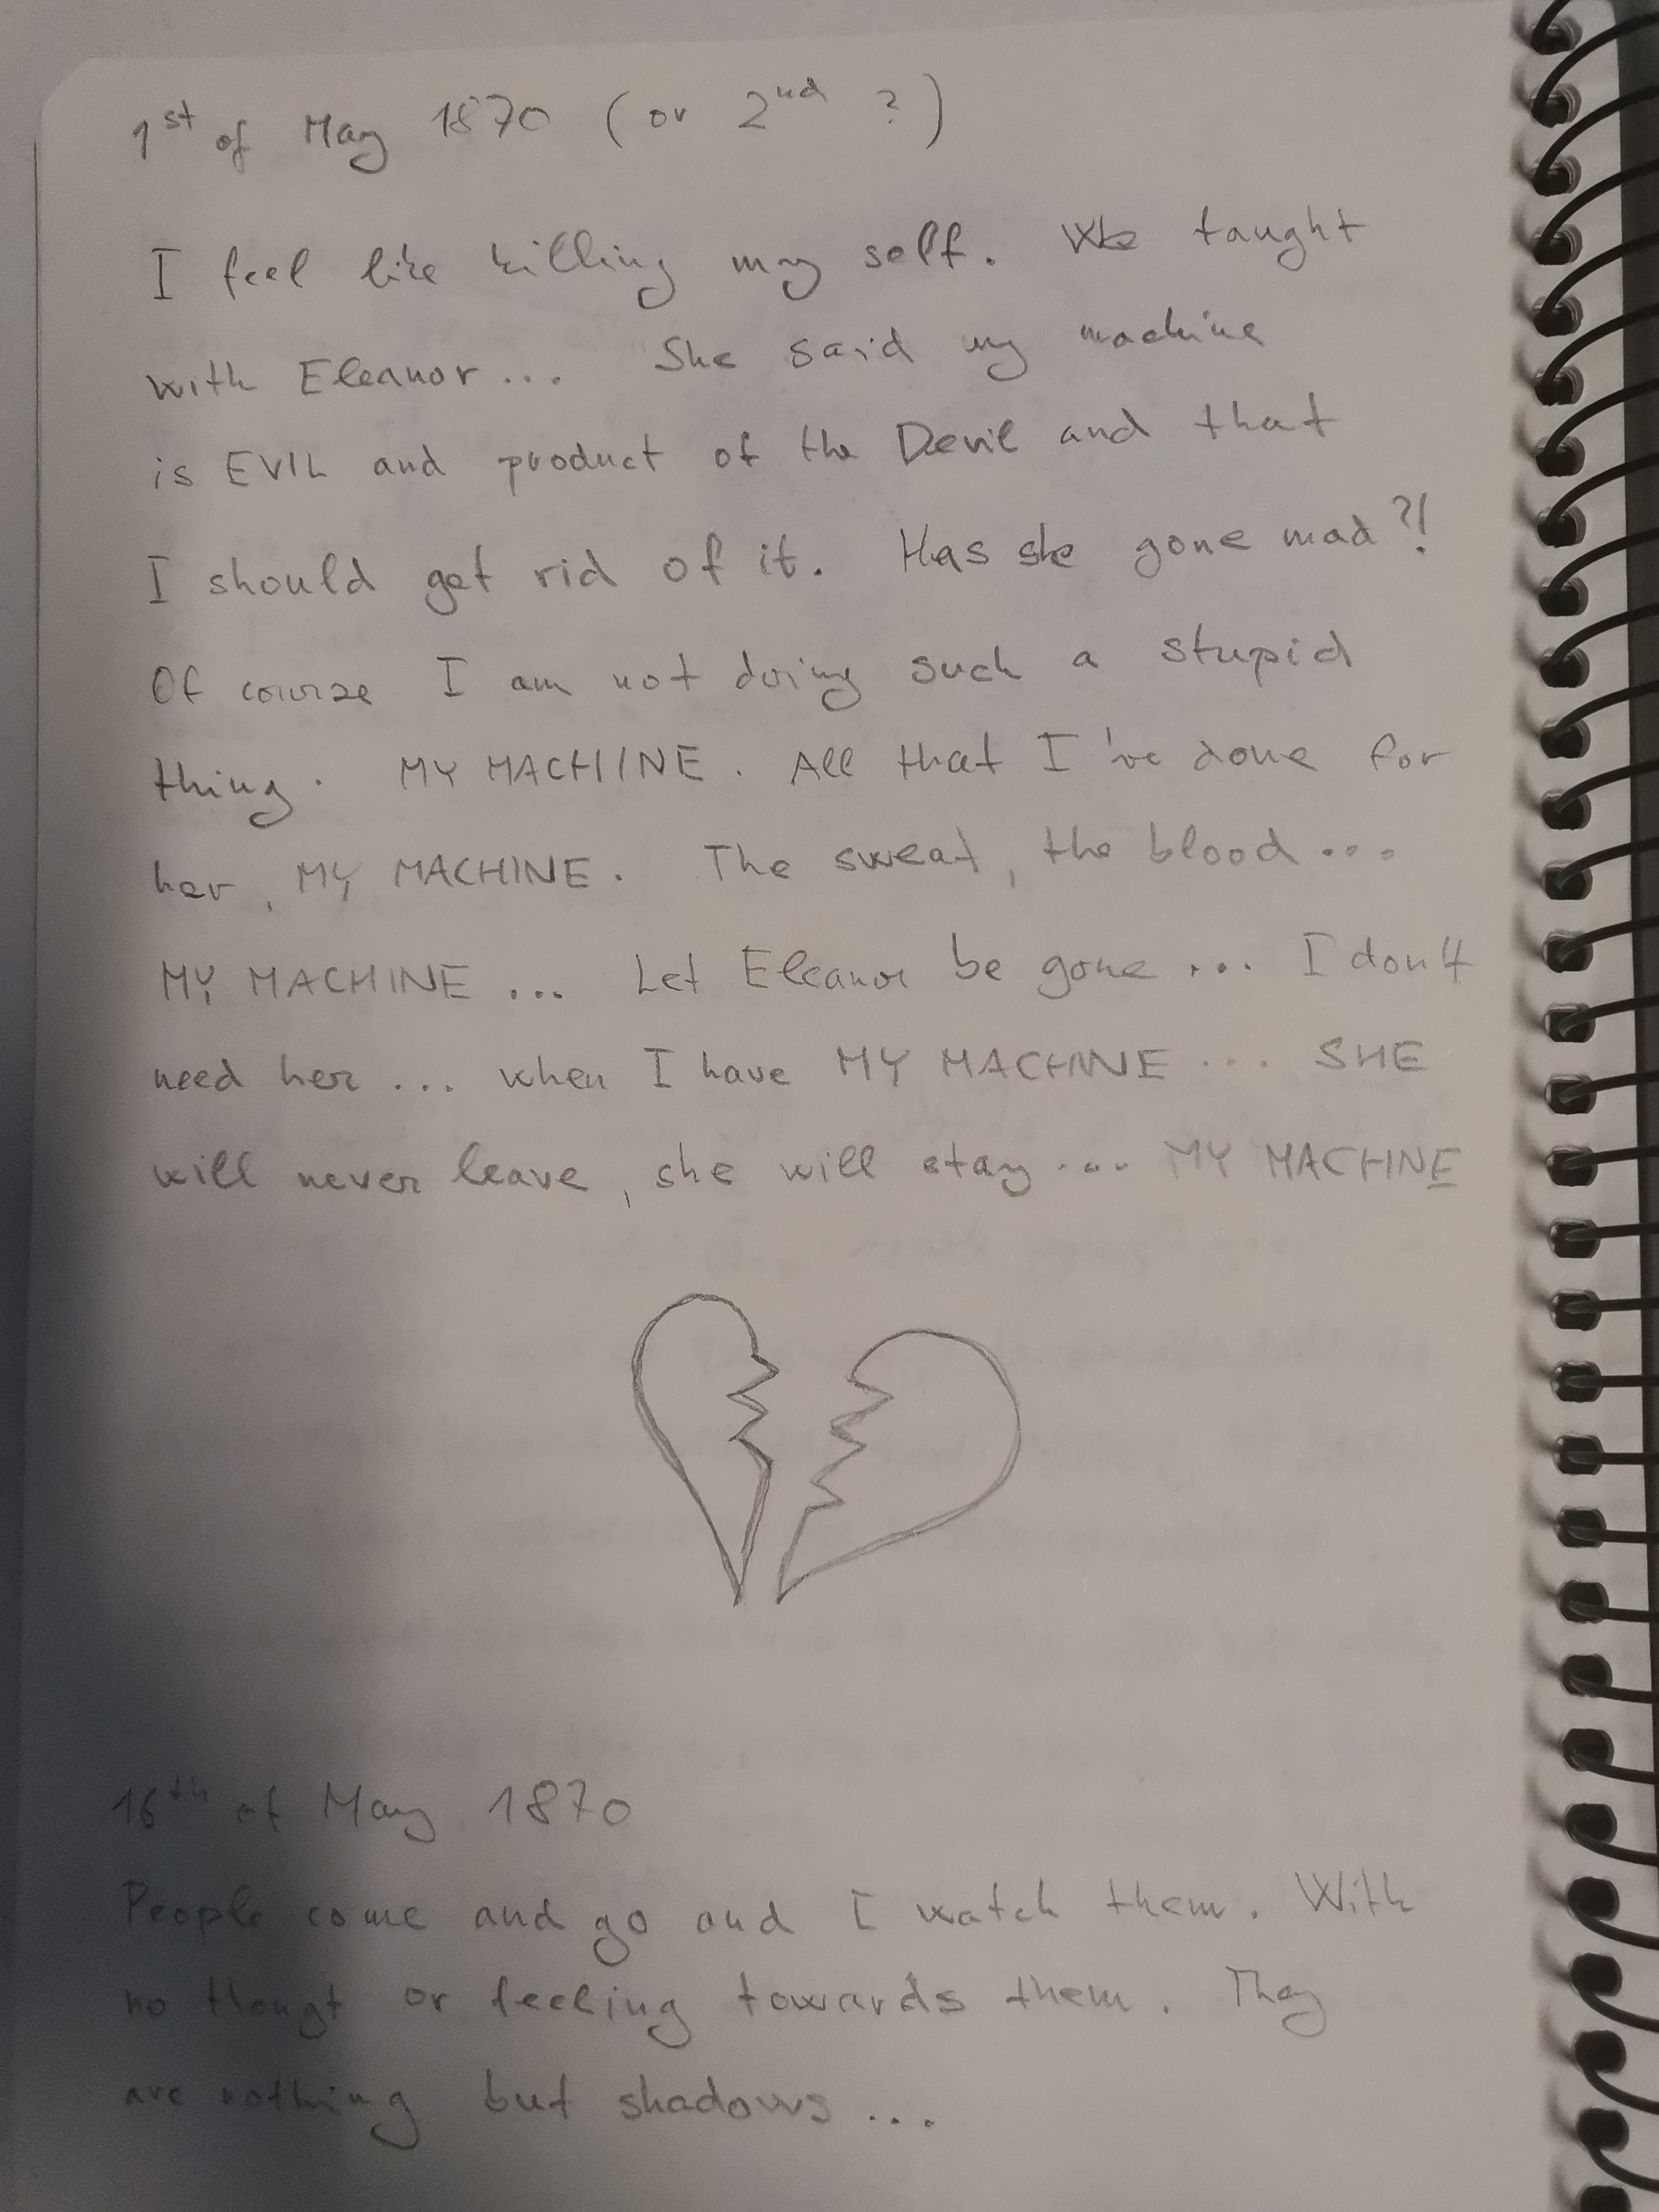 1st of May 1870 (or 2nd ?)
I feel like killing my self. We taught
with Eleanor... She said my machine
is EVIL and product of the Devil and that
I should get rid of it. Has she gone mad?!
Of course I am not doing such a stupid
thing. MY MACHINE. All that I've done for
her, MY MACHINE. The sweat, the blood...
MY MACHINE... Let Eleanor be gone... I don't
need her... when I have MY MACHINE... SHE
will never leave, she will stay... MY MACHINE
16th of May 1870
People come and go and I watch them. With
no thougt or feeling towards them. They
are nothing but shadows...